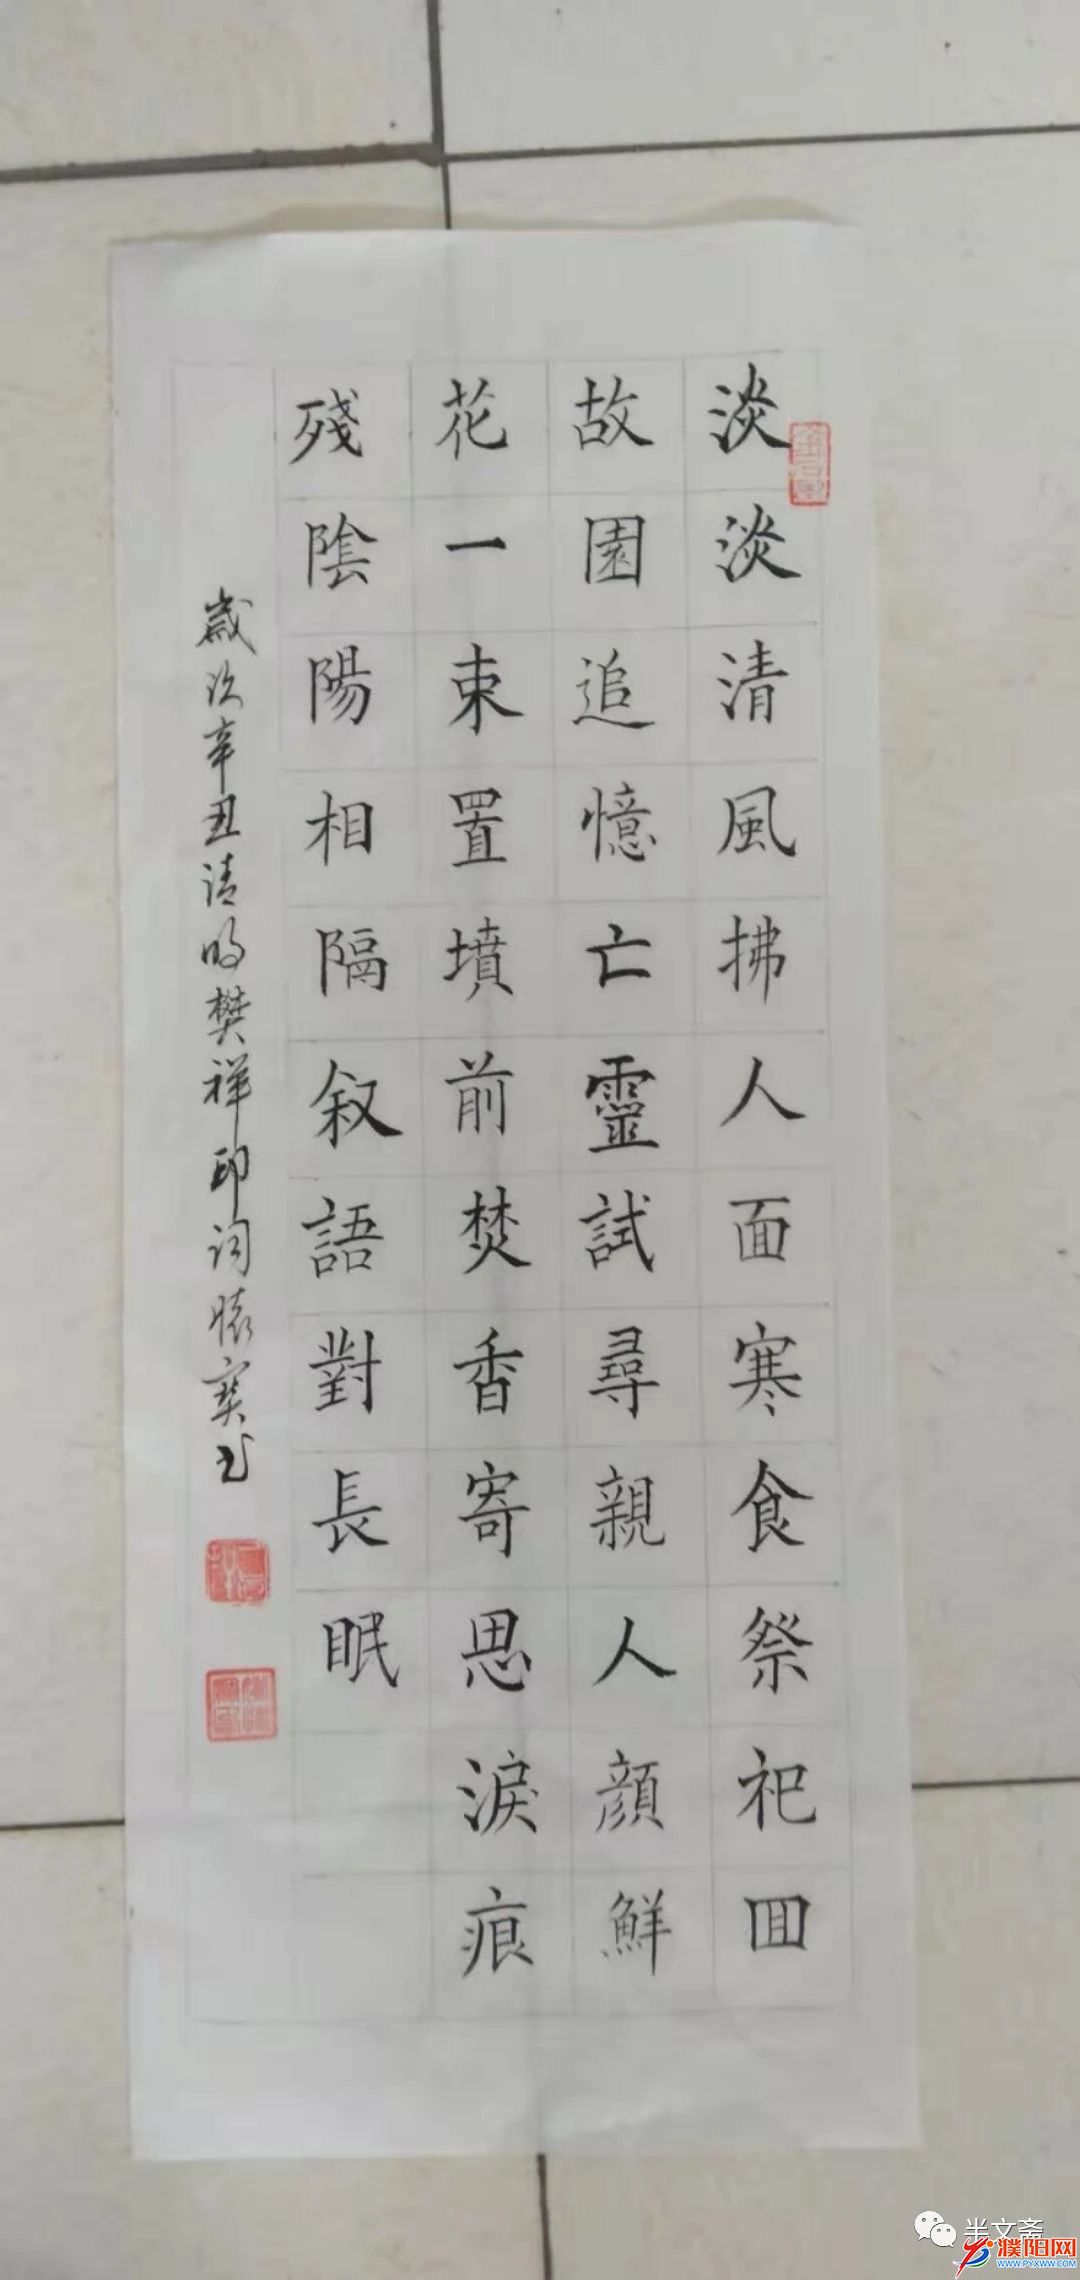 淡淡清風拂人面寒食祭祀囬
故園追憶亡靈試尋親人顔鮮
花一束置墳前焚香寄思淚痕
殘陰陽相隔叙語對長眠
歲次辛丑清明樊祥印词懷寶书
半文斋
濮阳网
WWW.PYXWW.COM